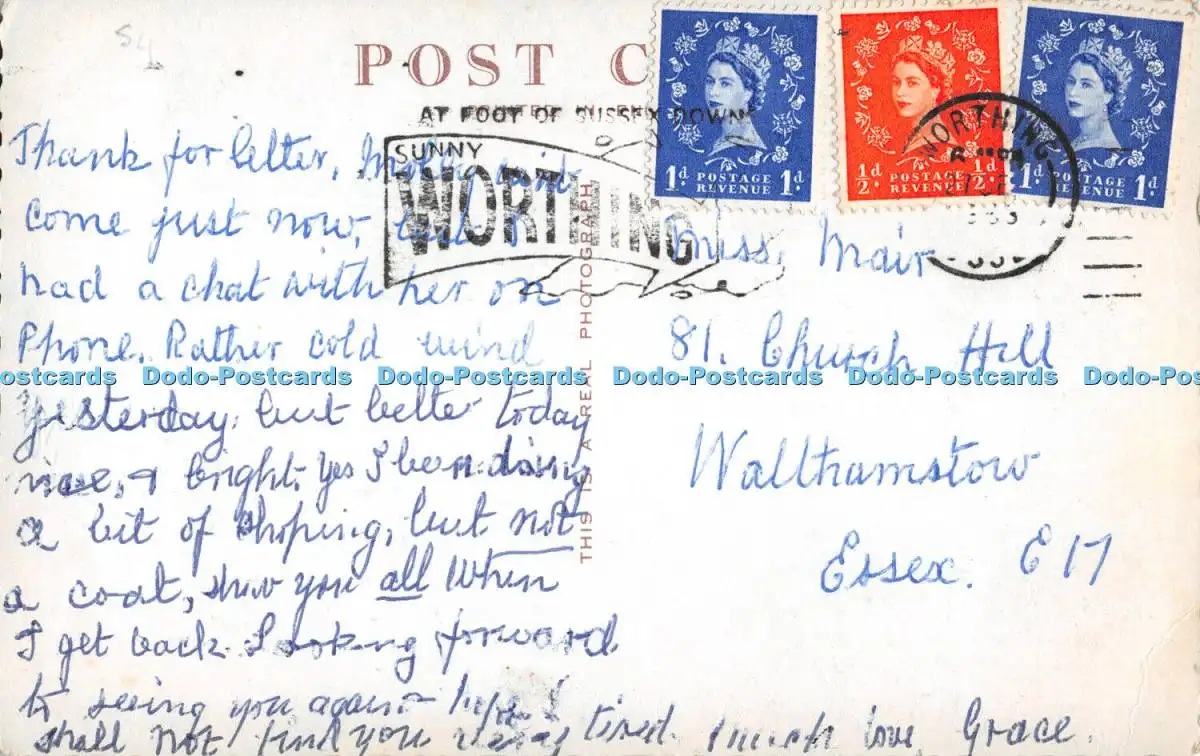 POST C
AT FOOT OF SUSSEX DOWNS
SUNNY
WORTHING
1d POSTAGE REVENUE 1d
1/2d POSTAGE REVENUE 1/2d
1d POSTAGE REVENUE 1d
WORTHING
Thank for letter,
come just now, but I
had a chat with her on
Phone. Rather cold wind
yesterday, but better today
nice, & bright. Yes I been doing
a bit of shoping, but not
a coat, show you all when
I get back. Looking forward
to seeing you again hope I
shall not find you very tired. much love Grace.
THIS IS A REAL PHOTOGRAPH
Miss. Mair
81. Church Hill
Wallthamstow
Essex. E17
Dodo-Postcards Dodo-Postcards Dodo-Postcards Dodo-Postcards Dodo-Postcards